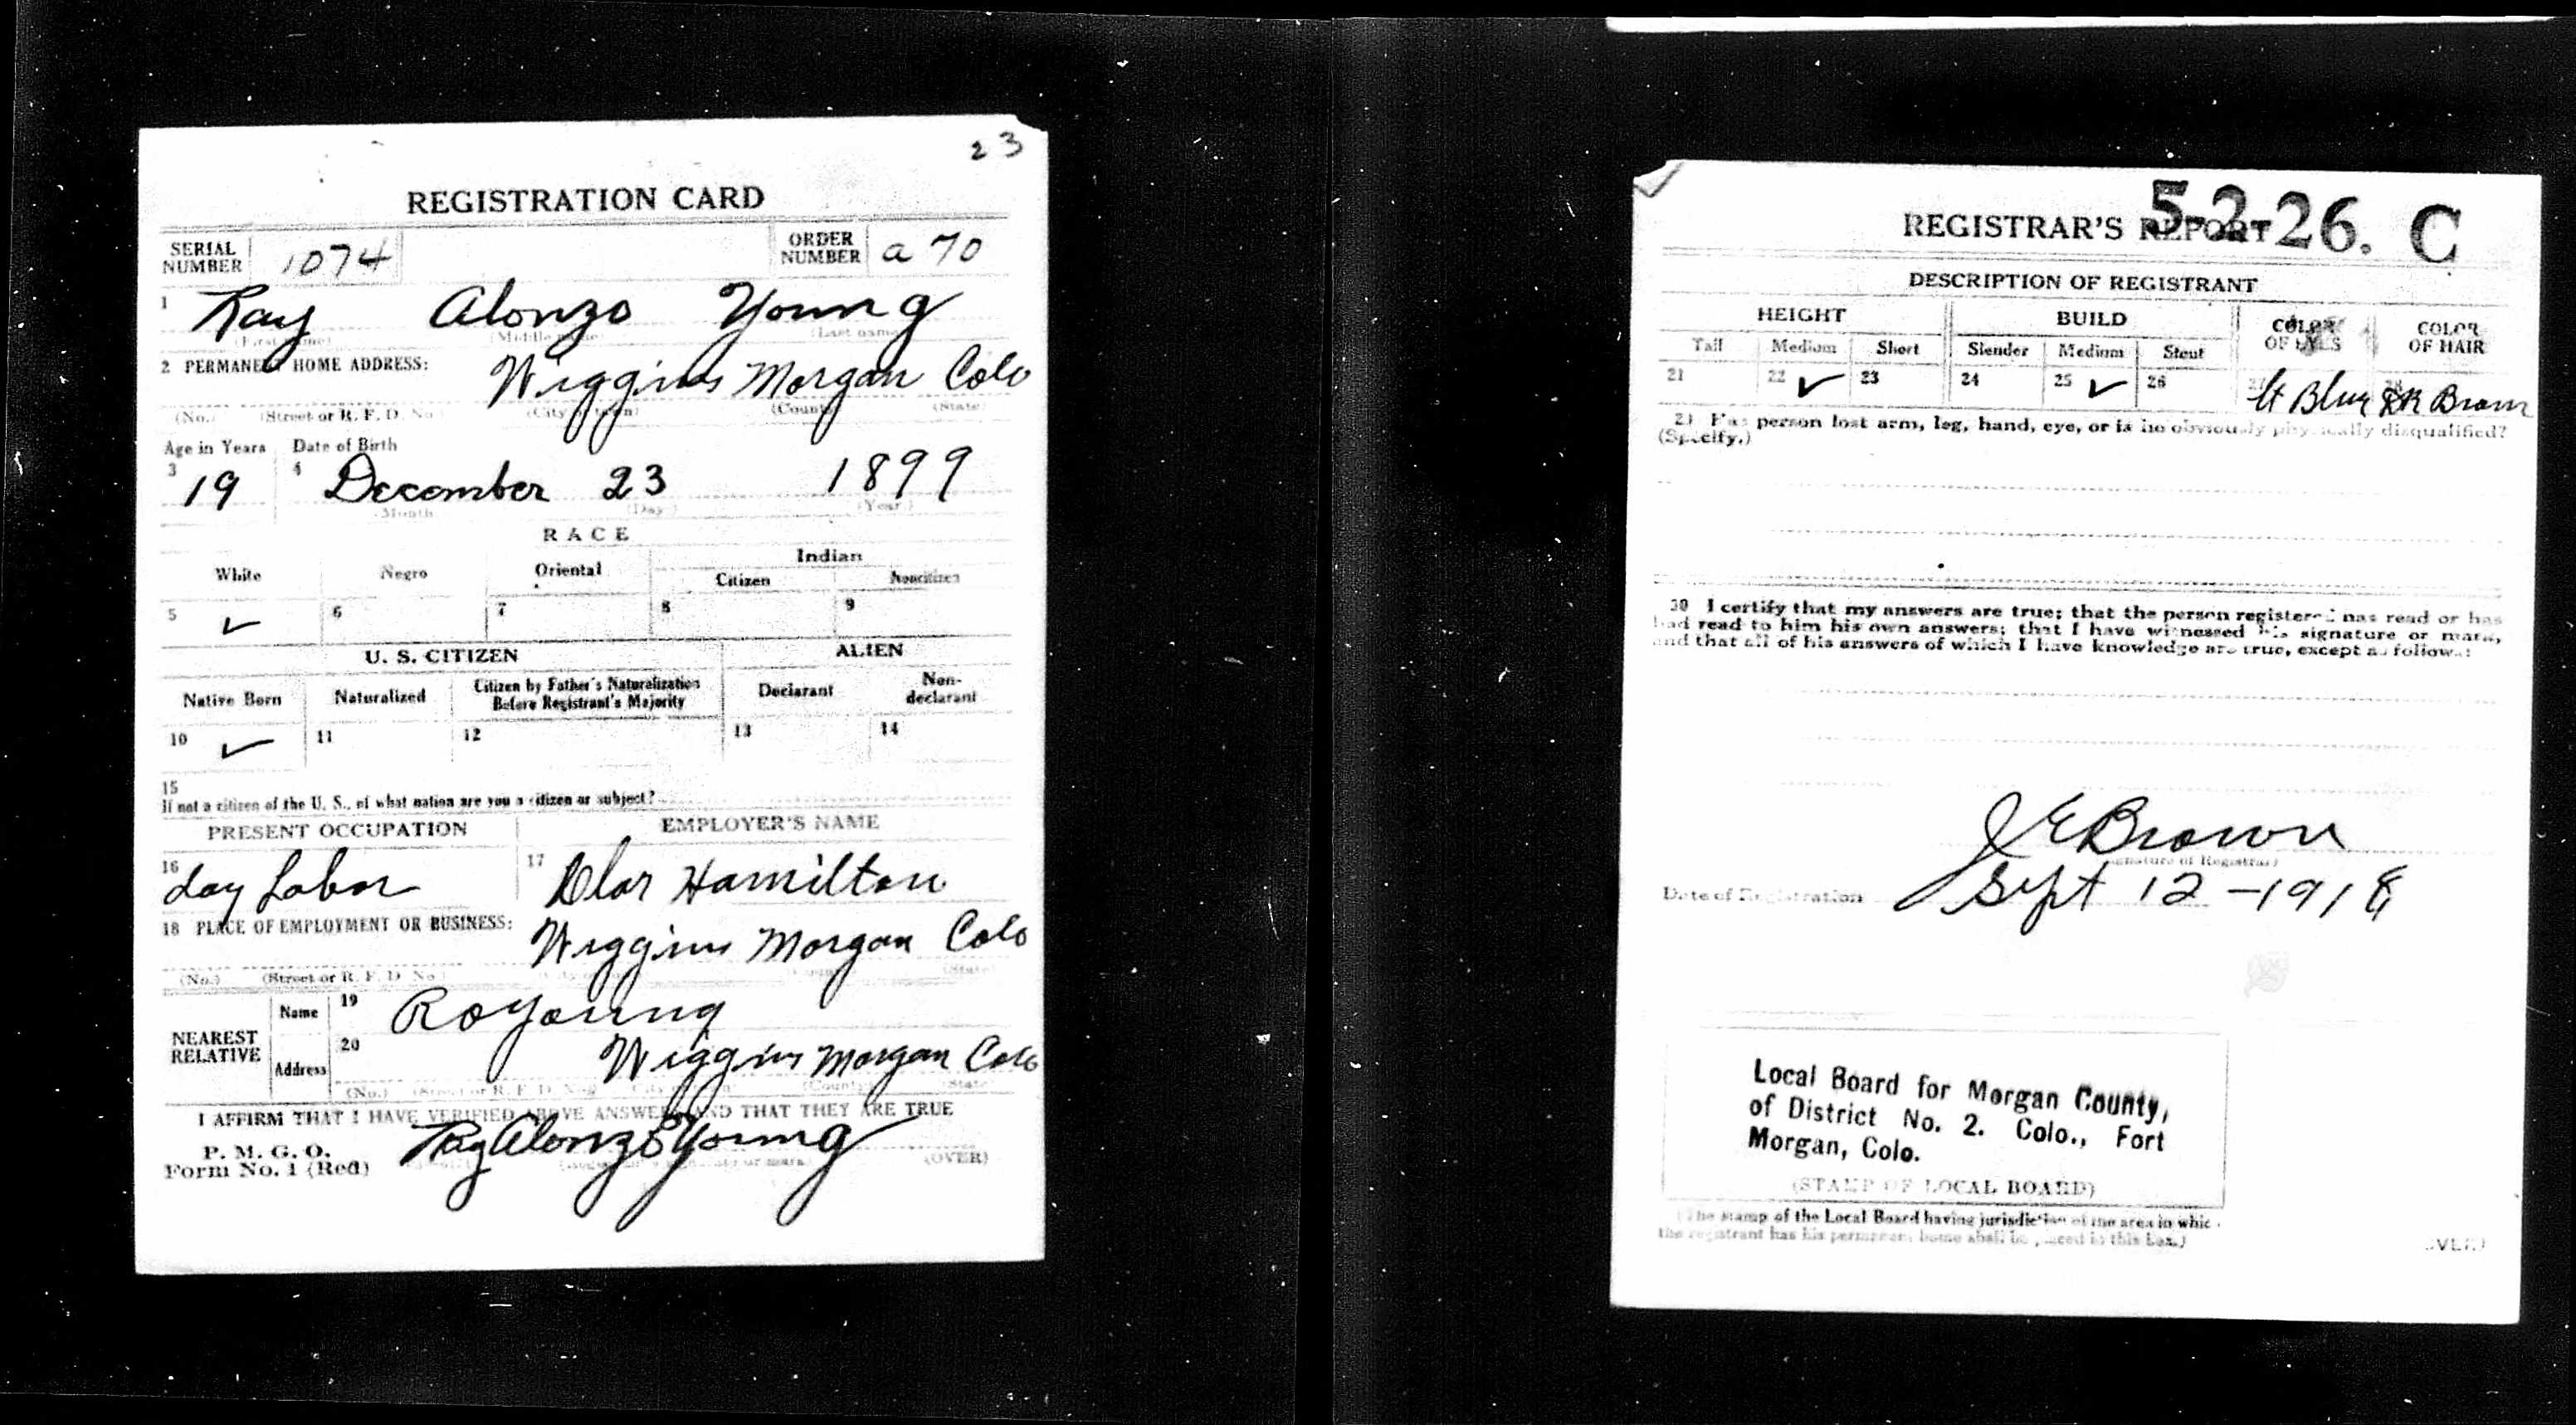 23
REGISTRATION CARD
SERIAL NUMBER 1074 ORDER NUMBER a 70
1 Ray Alonzo Young
(First name) (Middle name) (Last name)
2 PERMANENT HOME ADDRESS: Wiggins Morgan Colo
(No.) (Street or R. F. D. No.) (City or town) (County) (State)
Age in Years Date of Birth
3 19 4 December 23 1899
(Month) (Day) (Year)
RACE
White Negro Oriental Indian
Citizen Noncitizen
5 ✓ 6 7 8 9
U. S. CITIZEN ALIEN
Native Born Naturalized Citizen by Father's Naturalization Before Registrant's Majority Declarant Non-declarant
10 ✓ 11 12 13 14
15
If not a citizen of the U. S., of what nation are you a citizen or subject?
PRESENT OCCUPATION EMPLOYER'S NAME
16 day Labor 17 Hamilton
18 PLACE OF EMPLOYMENT OR BUSINESS: Wiggins Morgan Colo
(No.) (Street or R. F. D. No.) (State)
NEAREST RELATIVE Name 19 R O Young
Address 20 Wiggins Morgan Colo
(No.) (Street or R. F. D. No.) (City or town) (County) (State)
I AFFIRM THAT I HAVE VERIFIED ABOVE ANSWERS AND THAT THEY ARE TRUE
P. M. G. O.
Form No. 1 (Red) Ray Alonzo Young
(OVER)
REGISTRAR'S REPORT 5-2-26. C
DESCRIPTION OF REGISTRANT
HEIGHT BUILD COLOR OF EYES COLOR OF HAIR
Tall Medium Short Slender Medium Stout
21 22 ✓ 23 24 25 ✓ 26 27 lt Blue 28 DK Brown
29 Has person lost arm, leg, hand, eye, or is he obviously physically disqualified?
(Specify.)
30 I certify that my answers are true; that the person registered has read or has
had read to him his own answers; that I have witnessed his signature or mark,
and that all of his answers of which I have knowledge are true, except as follows:
J E Brown
(Signature of Registrar)
Date of Registration Sept 12 - 1918
Local Board for Morgan County,
of District No. 2. Colo., Fort
Morgan, Colo.
(STAMP OF LOCAL BOARD)
(The stamp of the Local Board having jurisdiction of the area in which
the registrant has his permanent home shall be placed in this box.)
(OVER)